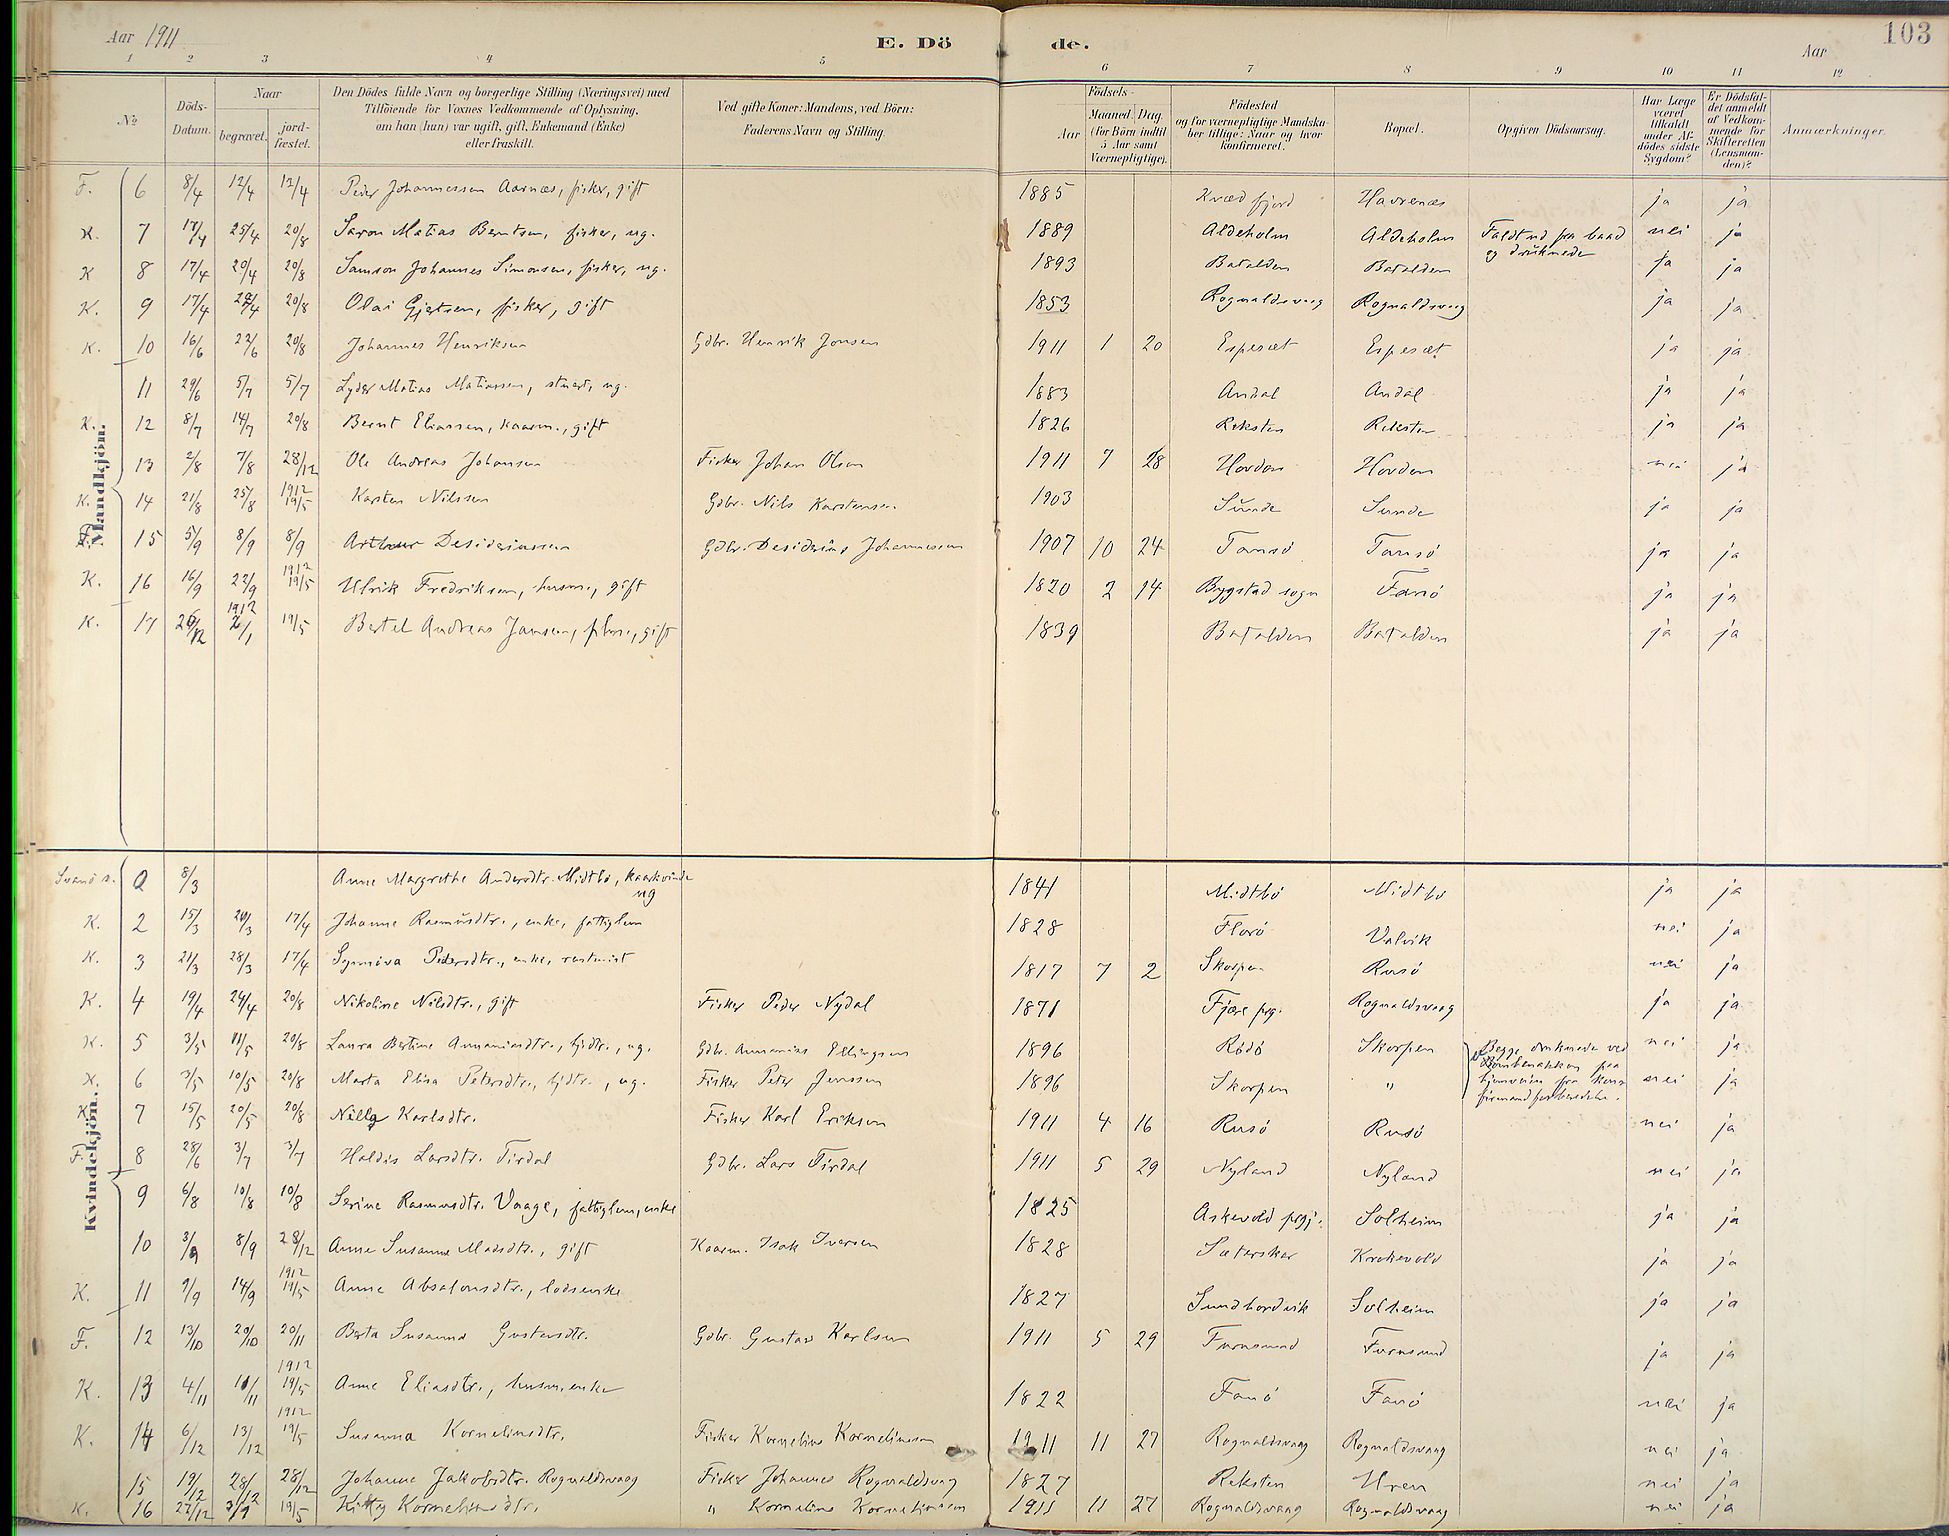 Aar 1911
E. Dö
de.
Aar
103
1 2 3 4 5 6 7 8 9 10 11 12
No
Döds-Datum.
Naar
begravet.
jord-fæstet.
Den Dödes fulde Navn og borgerlige Stilling (Næringsvei) med
Tilföiende for Voxnes Vedkommende af Oplysning,
om han (hun) var ugift, gift, Enkemand (Enke)
eller fraskilt.
Ved gifte Koner: Mandens, ved Börn:
Faderens Navn og Stilling.
Födsels-
Aar
Maaned. Dag.
(for Börn indtil
5 Aar samt
Værnepligtige).
Födested
og for værnepligtige Mandska-
ber tillige: Naar og hvor
konfirmeret.
Bopæl.
Opgiven Dödsaarsag.
Har Læge
været
tilkaldt
under Af-
dödes sidste
Sygdom?
Er Dödsfal-
det anmeldt
af Vedkom-
mende for
Skifteretten
(Lensman-
den)?
Anmærkninger.
Mandkjön.
F. 6 8/4 12/4 12/4 Peder Johannessen Aarnæs, fisker, gift 1885 Kvædfjord Havrenæs ja ja
K. 7 17/4 25/4 20/8 Saron Matias Berntsen, fisker, ug. 1889 Aldeholm Aldeholm Faldt ud fra baad nei ja
og druknede
K 8 17/4 20/4 20/8 Samson Johannes Simonsen, fisker, ug. 1893 Batalden Batalden ja ja
K. 9 17/4 22/4 20/8 Olai Gjertsen, fisker, gift 1853 Rognaldsvaag Rognaldsvaag ja ja
K. 10 16/6 22/6 20/8 Johannes Henriksen Gdbr. Henrik Jonsen 1911 1 20 Espesæt Espesæt ja ja
11 29/6 5/7 5/7 Lyder Matias Matiassen, stuert, ug. 1883 Andal Andal ja ja
K. 12 8/7 14/7 20/8 Bernt Eliassen, kaarm., gift 1826 Reksten Reksten ja ja
13 2/8 7/8 28/12 Ole Andreas Johansen Fisker Johan Olsen 1911 7 28 Hovden Hovden nei ja
K. 14 21/8 25/8 1912 19/5 Karsten Nilssen Gdbr. Nils Karstensen 1903 Sunde Sunde ja ja
F. 15 5/9 8/9 8/9 Arthur Desideriussen Gdbr. Desiderius Johannessen 1907 10 24 Tansö Tansö ja ja
K. 16 16/9 22/9 1912 19/5 Ulrik Fredriksen, husm., gift 1820 2 14 Bygstad sogn Fanö ja ja
K. 17 26/12 1912 2/1 19/5 Bertel Andreas Jansen, gift 1839 Batalden Batalden ja ja
Kvindekjön.
Svanö s. 8/3 Anne Margrethe Andersdtr. Midtbö, kaarkvinde 1841 Midtbö Midtbö ja ja
ug
K. 2 15/3 20/3 17/4 Johanne Rasmusdtr., enke, fattiglem 1828 Florö Valvik nei ja
K. 3 21/3 28/3 17/4 Synniva Pedersdtr., enke, 1817 7 2 Skorpen Rusö nei ja
K. 4 19/4 24/4 20/8 Nikoline Nilsdtr., gift Fisker Peder Nydal 1871 Fjære prg. Rognaldsvaag ja ja
K. 5 3/5 11/5 20/8 Laura Bertine Annaniasdtr., hjdtr., ug. Gdbr. Annanias Ellingsen 1896 Rödö Skorpen Begge druknede ved nei ja
K. 6 3/5 10/5 20/8 Marta Elisa Petersdtr., hjdtr., ug. Fisker Peter Jenssen 1896 Skorpen " hjemveien fra kon- nei ja
firmandforberedelse.
K 7 15/5 20/5 20/8 Nilly Karlsdtr. Fisker Karl Eriksen 1911 4 16 Rusö Rusö nei ja
F. 8 28/6 3/7 3/7 Haldis Larsdtr. Tirdal Gdbr. Lars Tirdal 1911 5 29 Nyland Nyland nei ja
9 6/8 10/8 10/8 Serine Rasmusdtr. Vaage, fattiglem, enke 1825 Askevold prgj. Solheim ja ja
10 3/9 8/9 28/12 Anne Susanne Madsdtr., gift Kaarm. Isak Iversen 1828 Sæterskar Krokevold ja ja
K. 11 9/9 14/9 1912 19/5 Anne Absalonsdtr., lodsenke 1827 Sundbordvik Solheim ja ja
F. 12 13/10 20/10 20/11 Berta Susanna Gustavsdtr. Gdbr. Gustav Karlsen 1911 5 29 Furusund Furusund ja ja
K. 13 4/11 10/11 1912 19/5 Anne Eliasdtr., husm.enke 1822 Fanö Fanö nei ja
K. 14 6/12 13/12 1912 19/5 Susanna Korneliusdtr. Fisker Kornelius Korneliussen 1911 11 27 Rognaldsvaag Rognaldsvaag nei ja
15 19/12 28/12 28/12 Johanne Jakobsdtr. Rognaldsvaag Fisker Johannes Rognaldsvag 1827 Reksten Uren nei ja
K. 16 27/12 3/1 19/5 Kitty Korneliusdtr. " Kornelius Korneliussen 1911 11 27 Rognaldsvaag Rognaldsvaag nei ja